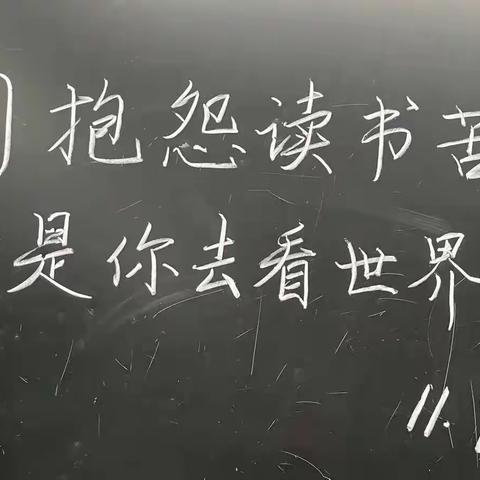 抱怨读书苦
是你去看世界
11.